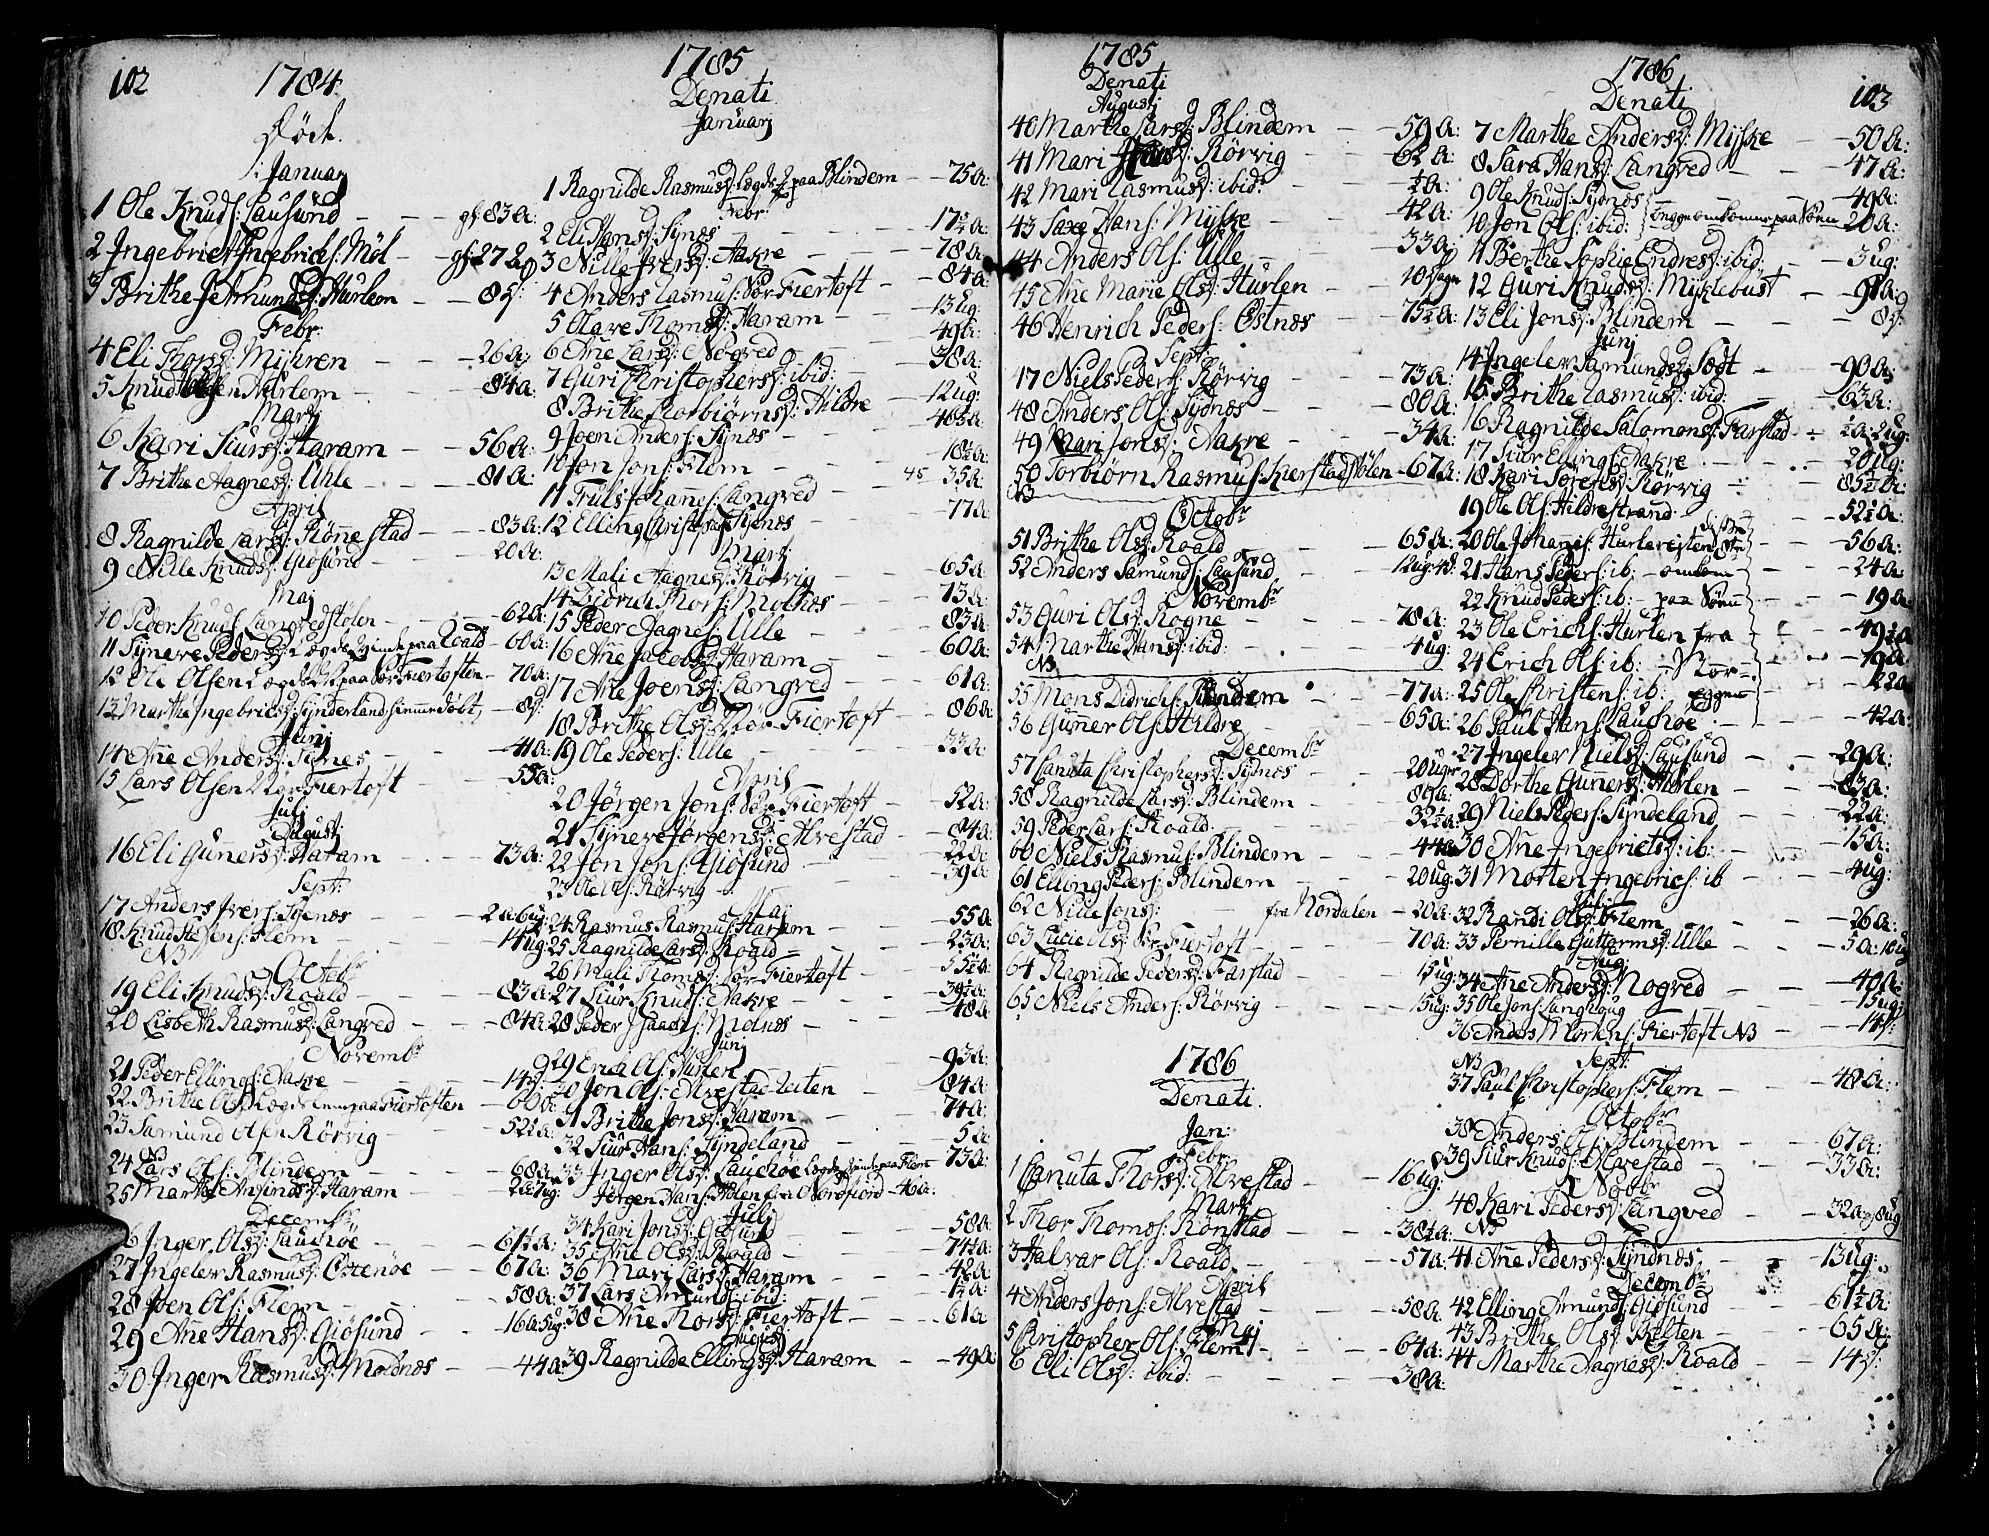 102
1784
Död.
Januarj
1 Ole Knuds: Lausünd - - - gf: 83 a:
2 Ingebrict Ingebrics: Möl - gf: 27 a
3 Brithe Jetmundsd: Hurlem - - 8 d:
Febr:
4 Eli Thorsd: Myhren - - - 26 a:
5 Knud Hurlem - - - 84 a:
Martj
6 Kari Siursd: Haram - - 56 a:
7 Brithe Aagnesd: Uhle - - 81 a:
April
8 Ragnilde Larsd: Rönnestad - - 83 a:
9 Nille Knudsd: Giösund - - 20 a:
Maj
10 Peder Knuds: Langvedstölen - - 62 a:
11 Synneve Pedersd: Lægdeqvinde paa Roald - 60 a:
12 Ole Olsen Lægde paa Nör Fiertoften - 70 a:
13 Marthe Ingebricsd: Synderland - 8 d:
Junj
14 Ane Andersd: Sijnes - - 41 a:
15 Lars Olsen Nör Fiertoft - - 55 a:
Julj
Augustj
16 Eli Guñersd: Haram - - 73 a:
Sept:
17 Anders Ivers: Sijnæs - - 2 a: 6 ug:
18 Knud Flem - - 14 ug:
NB
Octobr
19 Eli Knudsd: Roald - - - 83 a:
20 Lisbeth Rasmusd: Langved - - 84 a:
Novembr
21 Peder Ellings: Aakre - - 14 d:
22 Brithe Olsd: Lægdelem paa Fiertoften - 60 a:
23 Samund Olsen Rörvig - - 52½ a:
NB
24 Lars Ols: Blindem - - - 68 a:
25 Marthe Amundsd: Haram - -
Decembr
26 Inger Olsd: Lauchöe - - 61½ a:
27 Ingelev Rasmusd: Östenöe - - 67 a:
28 Joen Ols: Flem - - - 58 a:
29 Ane Hansd: Giösund - - 16 a: 5 ug:
30 Inger Rasmusd: Moldnæs - - 44 a:
1785
Denati
Januarj
1 Ragnilde Rasmusd: Lægdeq: paa Blindem - - 75 a:
Febr:
2 Eli Hansd: Synes - - - 17½ a:
3 Nille Iversd: Aakre - - - 78 a:
4 Anders Rasmus: Nör Fiertoft - - 84 a:
5 Olave Thomsd: Haram - - 13 ug:
6 Ane Larsd: Nogved - - - 49 a:
7 Guri Christophersd: ibid: - - 38 a:
8 Brithe Torbiörnsd: Hildre - - 12 ug:
9 Joen Anders: Sijnæs - - 40½ a:
10 Jon Jons: Flem - - - 18½ a:
11 Truls Johans: Langved - - 45 35 a:
12 Elling Christophs: Sijnæs - - 77 a:
Martj
13 Mali Aagnesd: Rörvig - - 65 a:
14 Didrich Thors: Molnæs - - 73 a:
15 Peder Aagnes: Ulle - - - 83 a:
16 Ane Jacobsd: Haram - - 60 a:
17 Ane Joensd: Langved - - 61 a:
18 Brithe Olsd: Nör Fiertoft - - 86 a:
19 Ole Peders: Ulle - - - 33 a:
April
20 Jörgen Jons: Nör Fiertoft - - 52 a:
21 Synneve Jörgensd: Alvestad - - 84 a:
22 Jon Jons: Giösund - - - 22 a:
23 Ole Ols: Rörvig - - - 39 a:
Maj
24 Rasmus Rasmus: Haram - - 55 a:
25 Ragnilde Larsd: Roald - - 23 a:
26 Mali Thomsd: Sör Fiertoft - - 55½ a:
27 Siur Knuds: Aakre - - - 39½ a:
28 Peder Isaachs: Molnæs - - 48 a:
Junj
29 Erich Ols: Hurlen - - - 93 a:
30 Jon Ols: Alvestad - - 84 a:
31 Brithe Jonsd: Haram - - 74 a:
32 Siur Hans: Syndeland - - 5 a:
33 Inger Olsd: Lauchöe Lægdeqvinde paa Flem 73 a:
Jörgen Hans: Holen fra Nordfiord - 46 a:
Julj
34 Kari Jonsd: Giösund - - 58 a:
35 Ane Olsd: Roald - - - 74½ a:
36 Mari Larsd: Haram - - - 42 a:
37 Lars Amunds: ibid: - - 1½ a:
38 Ane Thorsd: Fiertoft - - 61 a:
Augustj
39 Ragnilde Ellingsd: Haram - - 49 a:
1785
Denati
Augustj
40 Marthe Larsd: Blindem - - 59 a:
41 Mari Rörvig - - 62 a:
42 Mari Rasmusd: ibid: - - ½ a:
43 Saxe Hans: Myhre - - - 42 a:
44 Anders Ols: Ulle - - - 33 a:
45 Ane Marie Olsd: Hurlen - - 10 dage
46 Henrich Peders: Östnæs - - 75½ a:
Sept:
47 Niels Peders: Rörvig - - 73 a:
48 Anders Ols: Sydnes - - - 80 a:
49 Mari Jonsd: Aakre - - - 34 a:
50 Torbiörn Rasmus: Kierstadstölen - 67 a:
NB
Octobr
51 Brithe Olsd: Roald - - 65 a:
52 Anders Samunds: Lausund - 12 ug:
Novembr
53 Guri Olsd: Rogne - - 78 a:
54 Marthe Hansd: ibid: - - 4 ug:
NB
55 Mons Didrichs: Blindem - - 77 a:
56 Guñer Ols: Hildre - - 65 a:
Decembr
57 Canuta Christophersd: Sydnæs - - 20 ugr
58 Ragnilde Larsd: Blindem - - 80 a:
59 Peder Lars: Roald - - 32½ a:
60 Niels Rasmus: Blindem - - 44 a:
61 Elling Peders: Blindem - - 20 ug:
62 Nille Jonsd: fra Nordalen - 20 a:
63 Lucie Olsd: Nör Fiertoft - - 70 a:
64 Ragnilde Pedersd: Farstad - - 15 ug:
65 Niels Anders: Rörvig - - 15 ug:
1786
Denati.
Jan:
Febr:
1 Canuta Thorsd: Alvestad - - 16 ug:
Martj
2 Thor Thoms: Rönstad - - 38½ a:
3 Halvar Ols: Roald - - - 57 a:
April
4 Anders Jons: Alvestad - - 58 a:
Maj
5 Christopher Ols: Flem - - 64 a:
6 Eli Olsd: ibid: - - - 38 a:
1786
Denati
103
7 Marthe Andersd: Myhre - - 50 a:
8 Sara Hansd: Langved - - 47 a:
9 Ole Knuds: Sydnes - - 49 a:
10 Jon Ols: ibid: begge omkomne paa Söen 20 a:
11 Berthe Sophie Endresd: ibid: - - 3 ug:
12 Guri Knudsd: Myklebust - - 91 a:
13 Eli Jonsd: Blindem - - - 8 d:
Junj
14 Ingelev Samundsd: Södt - - 90 a:
15 Brithe Rasmusd: ibid: - - 63 a:
16 Ragnilde Salomonsd: Farstad - ½ a: 2 ug:
17 Siur Ellings: Aakre - - - 20 ug:
18 Kari Sörensd: Rörvig - - 85½ a:
19 Ole Ols: Hildrestrand - - 52½ a:
20 Ole Johans: Hurlereiten - - 56 a:
21 Hans Peders: ib: - omkom - 24 a:
22 Knud Peders: ib: - paa Söen - 19 a:
23 Ole Erichs: Hurlen fra - - 49½ a:
24 Erich Ols: ib: - Nor- - 19 a:
25 Ole Christens: ib: eggen - 22 a:
26 Paul Hans: Lauchöe - - - 42 a:
27 Ingelev Nielsd: Lausund - - 29 a:
28 Dorthe Guñersd: Hurlen - - 83 a:
29 Niels Peders: Syndeland - - 22 a:
30 Ane Ingebrictsd: ib: - - 15 a:
31 Morten Ingebrics: ib - - 4 ug:
Julj
32 Randi Olsd: Flem - - - 26 a:
33 Pernille Guttormsd: Ulle - - 5 a: 10 ug
Aug:
34 Ane Andersd: Nogved - - 40 a:
35 Ole Jons: Langhoug - - 15 ug:
36 Anders Mortens: Fiertoft NB - - 14 d:
NB Sept:
37 Paul Christophers: Flem - - 48 a:
Octobr
38 Anders Ols: Blindem - - 67 a:
39 Siur Knuds: Alvestad - - 33 a:
Novbr
40 Kari Pedersd: Langved - - 32 a: 8 ug
NB
41 Ane Pedersd: Syndnæs - - 13 ug:
Decembr
42 Elling Amunds: Giösund - - 61½ a:
43 Brithe Olsd: Belten - - 65 a:
44 Marthe Aagnæsd: Roald - - 14 d: